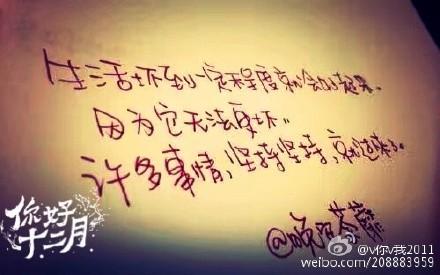 生活坏到一定程度就会好起来.
因为它无法更坏.
许多事情,坚持坚持,就过来了.
@晚安荼蘼
你好
十二月
@v你v我2011
weibo.com/208883959